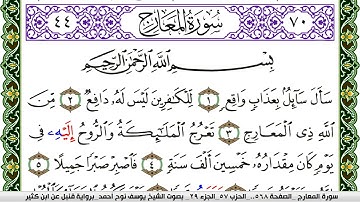 ٤٤ سُورَةُ الْمَعَارِجِ ٧٠
بِسْمِ اللَّهِ الرَّحْمَٰنِ الرَّحِيمِ
سَأَلَ سَآئِلُۢ بِعَذَابٍ وَاقِعٍ ١ لِّلْكَٰفِرِينَ لَيْسَ لَهُۥ دَافِعٌ ٢ مِّنَ
اللَّهِ ذِى الْمَعَارِجِ ٣ تَعْرُجُ الْمَلَٰٓئِكَةُ وَالرُّوحُ إِلَيْهِۦ فِى
يَوْمٍ كَانَ مِقْدَارُهُۥ خَمْسِينَ أَلْفَ سَنَةٍ ٤ فَاصْبِرْ صَبْرًا جَمِيلًا ٥
سورة المعارج _الصفحة ٥٦٨ .. الحزب ٥٧_ الجزء ٢٩_ بصوت الشيخ يوسف نوح أحمد_ برواية قنبل عن ابن كثير